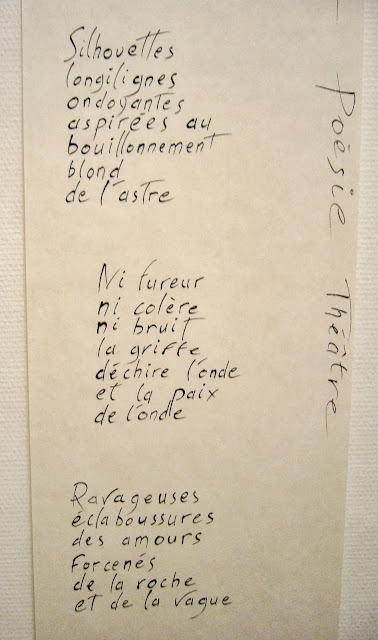 Silhouettes
longilignes
ondoyantes
aspirées au
bouillonnement
blond
de l'astre
Ni fureur
ni colère
ni bruit
la griffe
déchire l'onde
et la paix
de l'onde
Ravageuses
éclaboussures
des amours
forcenés
de la roche
et de la vague
Poésie Théâtre